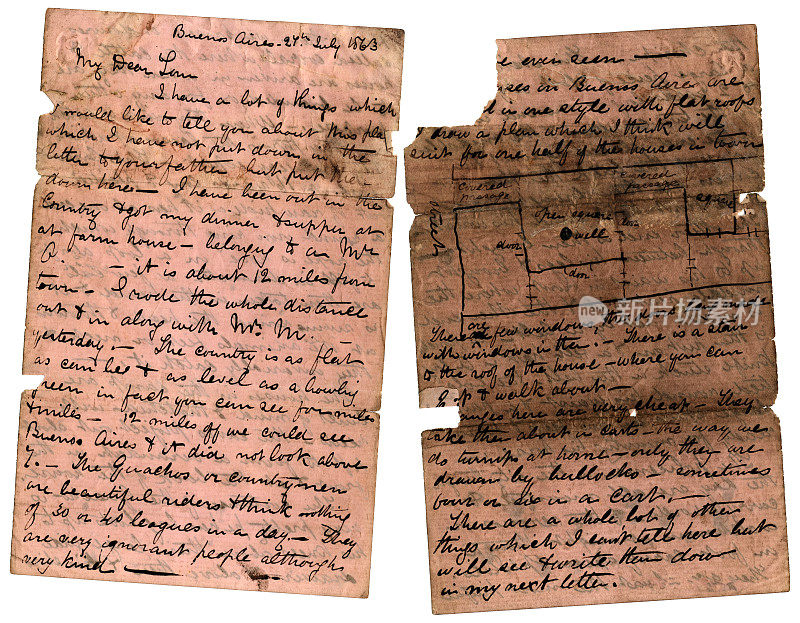 Buenos Aires - 27th July 1863
My Dear Tom
I have a lot of things which
I would like to tell you about this pla
which I have not put down in the
letter to your father but put the
down here - I have been out in the
Country & got my dinner & supper at
at farm house - belonging to a Mr
P - it is about 12 miles from
town - I rode the whole distance
out & in along with Mr. M.
yesterday - The country is as flat
as can be & as level as a bowling
green in fact you can see for miles
& miles - 12 miles off we could see
Buenos Aires & it did not look above
7. - The Guachos or countrymen
are beautiful riders & think nothing
of 30 or 40 leagues in a day - They
are very ignorant people although
very kind
e even seen
ses in Buenos Aires are
d in one style with flat roofs
draw a plan which I think will
suit for one half of the houses in town
covered passage
covered passage
square
open square
well
door
door
street
There are few windows
with windows in them. - There is a stair
to the roof of the house - where you can
get up & walk about -
anges here are very cheap - They
take them about in carts - the way we
do turnips at home - only they are
drawn by bullocks - sometimes
four or six in a cart. -
There are a whole lot of other
things which I can't tell here but
will see & write them down
in my next letter.
new
视觉中国